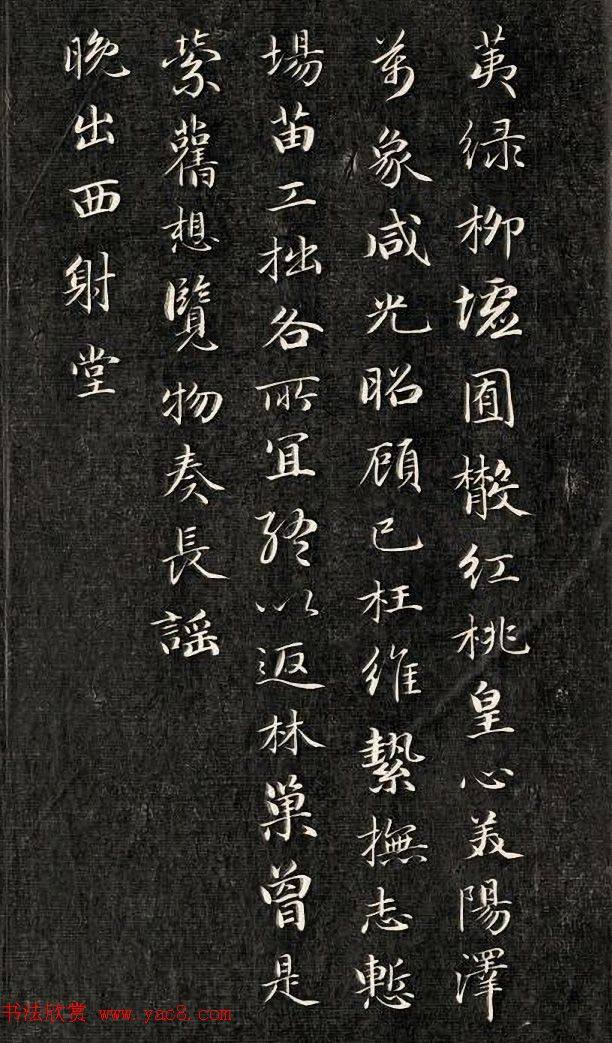 荑绿柳墟囿散红桃皇心美陽澤
萬象咸光昭顾已枉維縶撫志慙
場苗工拙各所宜終以返林巢曾是
縈舊想覽物奏長謡
晚出西射堂
书法欣赏 www.yac8.com